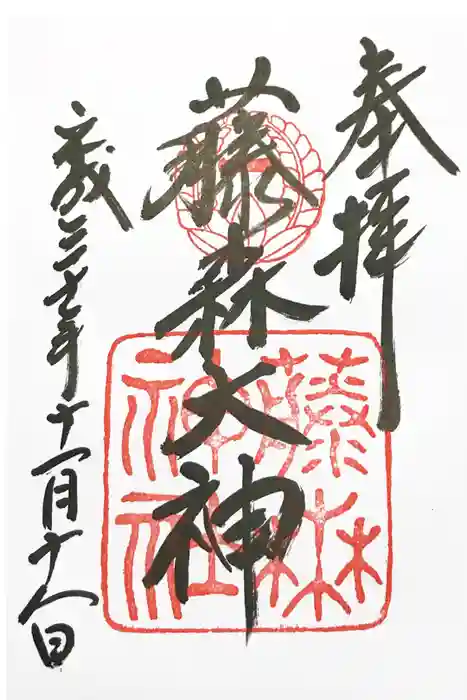 奉拝
藤森大神
平成三十年十一月十八日
藤森
神社